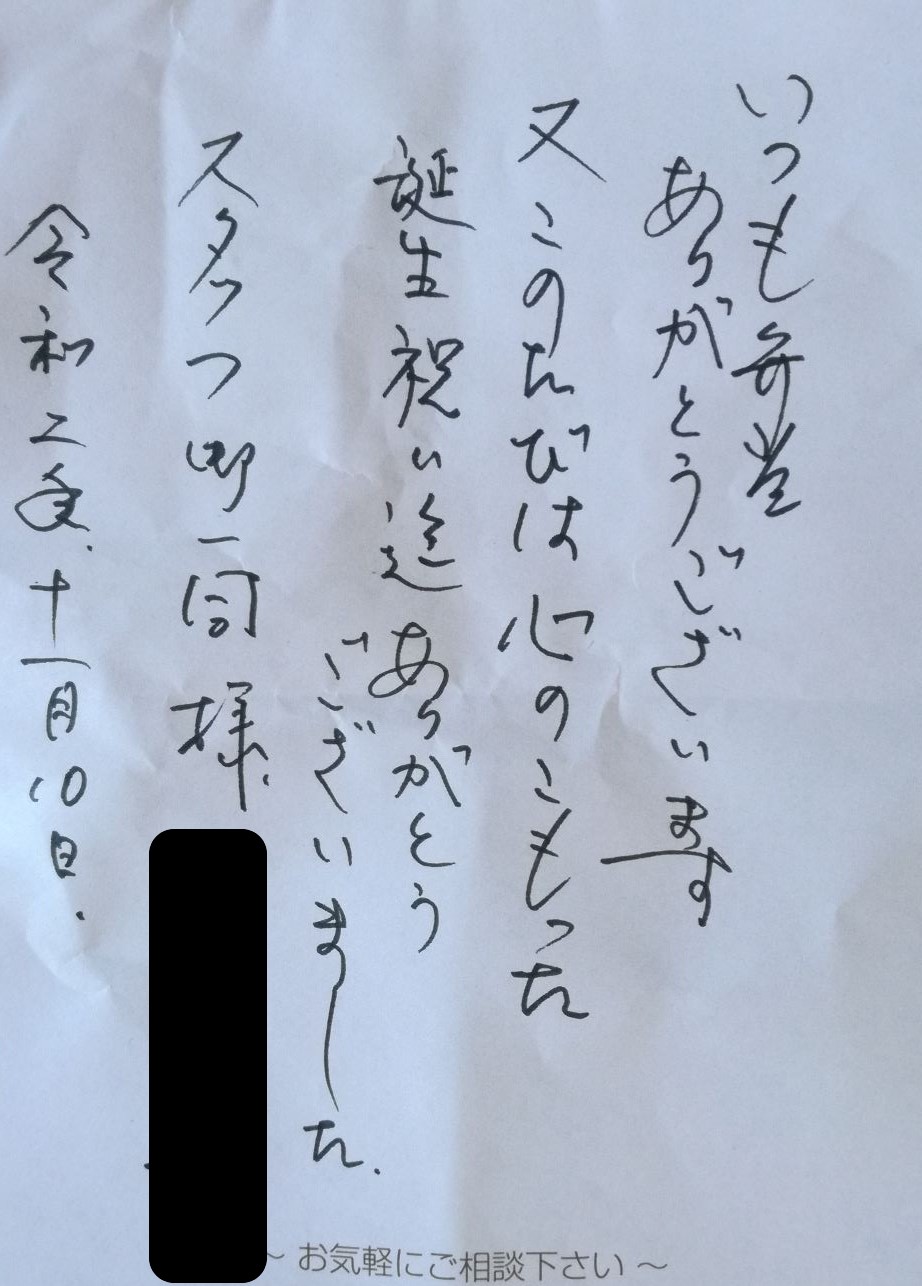 いつも弁当
ありがとうございます
又このたびは心のこもった
誕生祝い迄ありがとう
ございました.
スタッフ御一同様
令和二年、十一月10日.
～ お気軽にご相談下さい ～